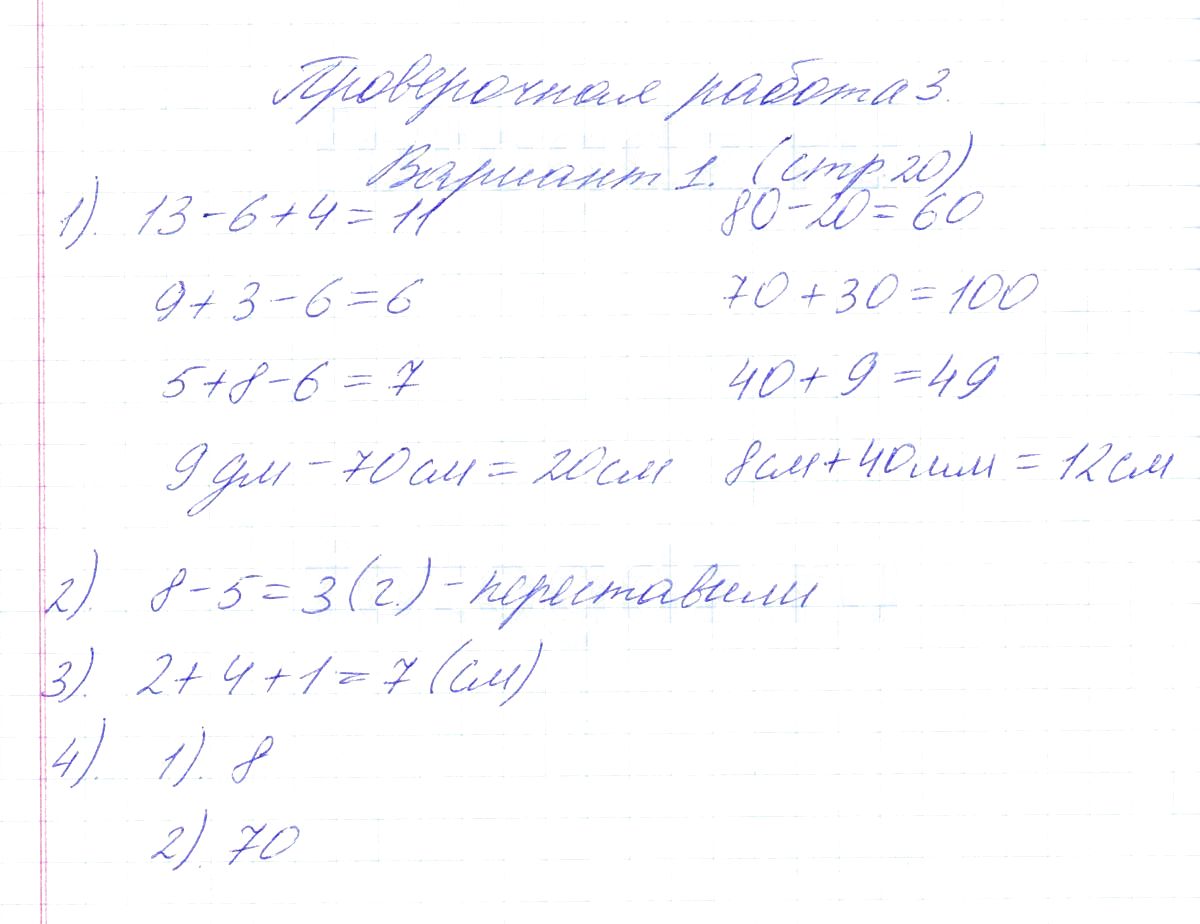 Проверочная работа 3.
Вариант 1. (стр. 20)
1). 13 - 6 + 4 = 11 80 - 20 = 60
9 + 3 - 6 = 6 70 + 30 = 100
5 + 8 - 6 = 7 40 + 9 = 49
9 дм - 70 см = 20 см 8 см + 40 мм = 12 см
2). 8 - 5 = 3 (г.) - переставили
3). 2 + 4 + 1 = 7 (см)
4). 1). 8
2). 70